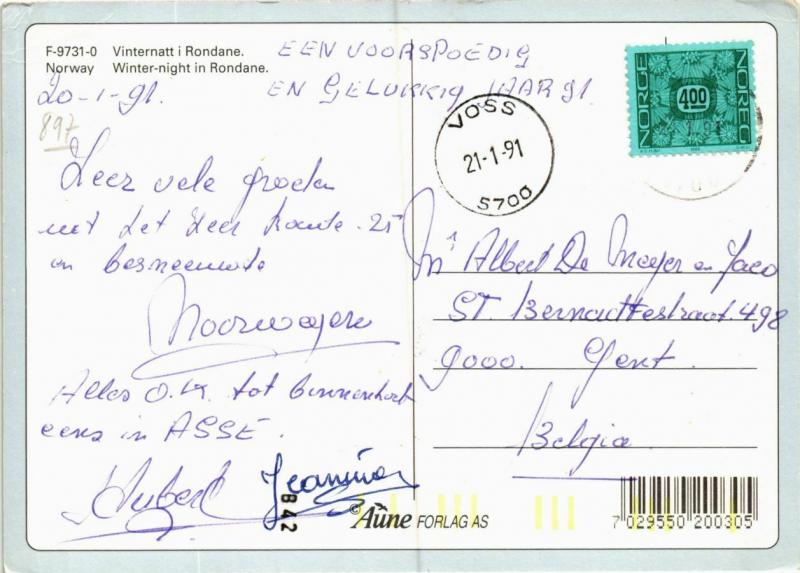 F-9731-0 Vinternatt i Rondane.
Norway Winter-night in Rondane.
EEN VOORSPOEDIG
EN GELUKKIG JAAR 91.
20-1-91.
897
Zeer vele groeten
uit het zeer koude -25
en besneeuwde
Noorwegen
Alles O.K. tot binnenkort
eens in ASSE.
Hubert Jeannine
NORGE
4.00
NOREG
VOSS
21-1-91
5700
Albert De Meyer en Jaco
ST. Bernadettestraat. 498
9000. Gent.
Belgie
842
© Aune FORLAG AS
7 029550 200305